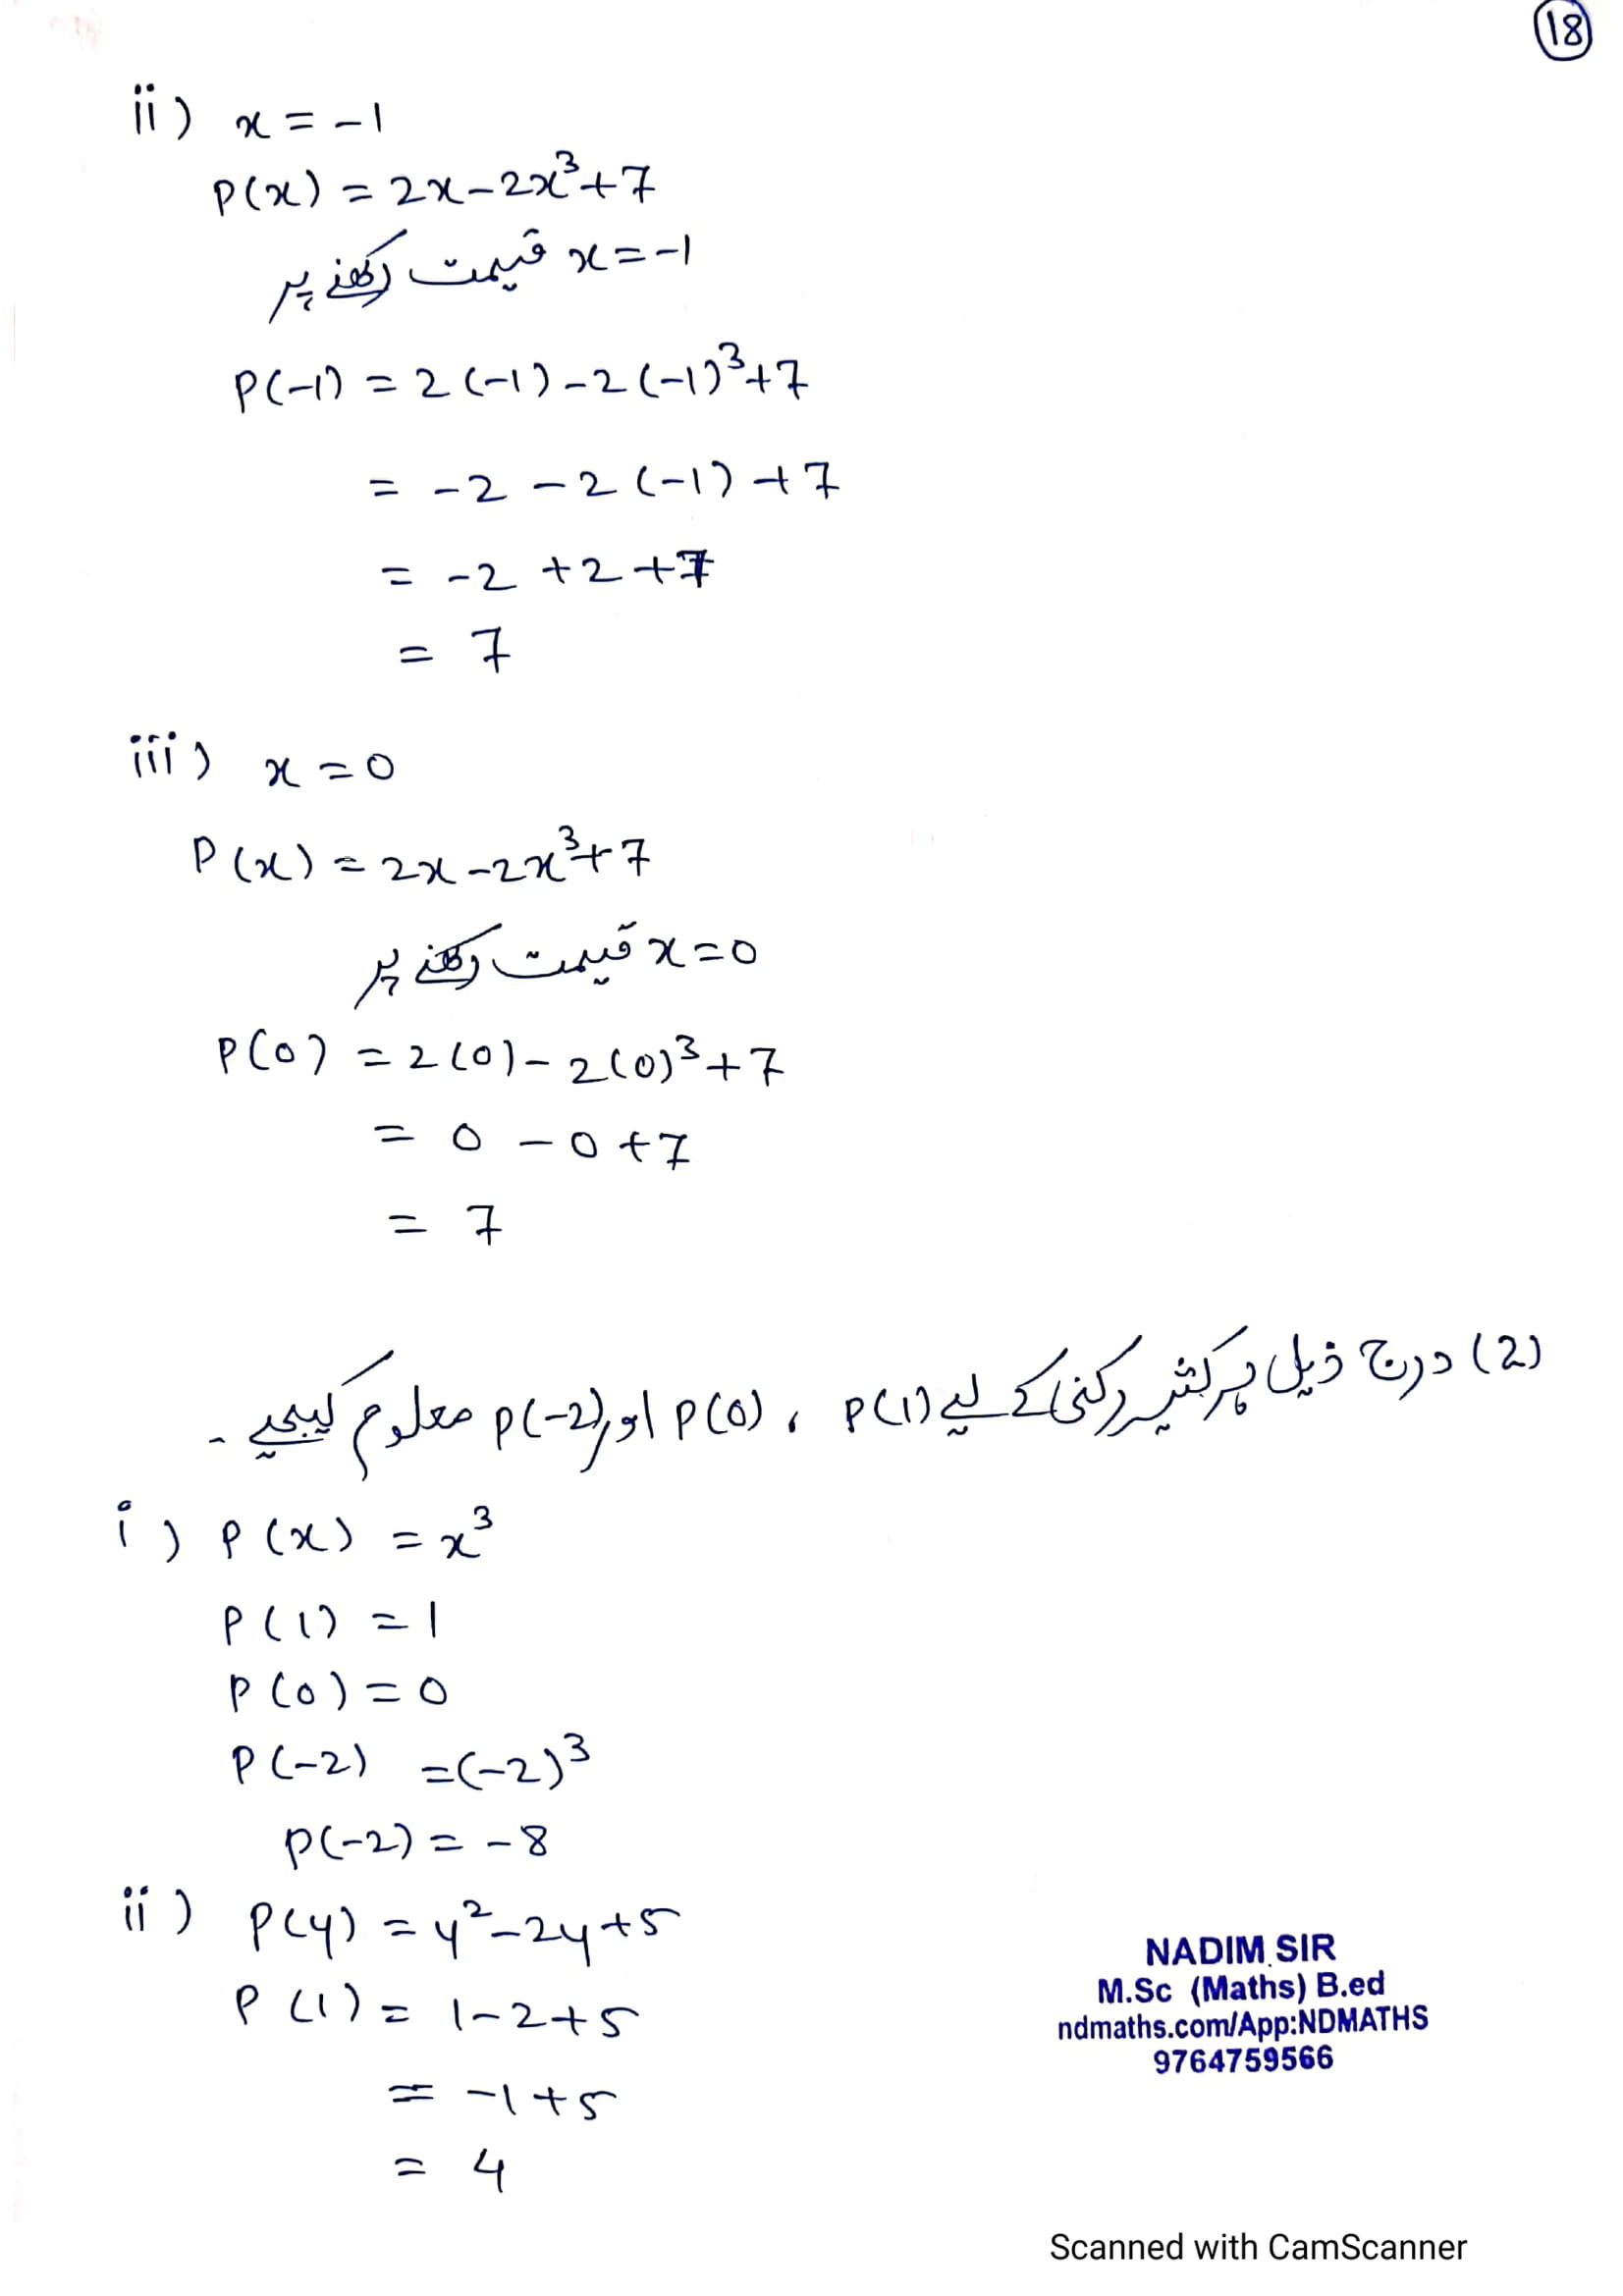 18
ii) x = -1
P(x) = 2x - 2x³ + 7
x = -1 قیمت رکھنے پر
P(-1) = 2(-1) - 2(-1)³ + 7
= -2 - 2(-1) + 7
= -2 + 2 + 7
= 7
iii) x = 0
P(x) = 2x - 2x³ + 7
x = 0 قیمت رکھنے پر
P(0) = 2(0) - 2(0)³ + 7
= 0 - 0 + 7
= 7
(2) درج ذیل ہر کثیر رکنی کے لیے P(1) ، P(0) اور P(-2) معلوم کیجیے ۔
i) P(x) = x³
P(1) = 1
P(0) = 0
P(-2) = (-2)³
P(-2) = -8
ii) P(y) = y² - 2y + 5
P(1) = 1 - 2 + 5
= -1 + 5
= 4
NADIM SIR
M.Sc (Maths) B.ed
ndmaths.com/App:NDMATHS
9764759566
Scanned with CamScanner